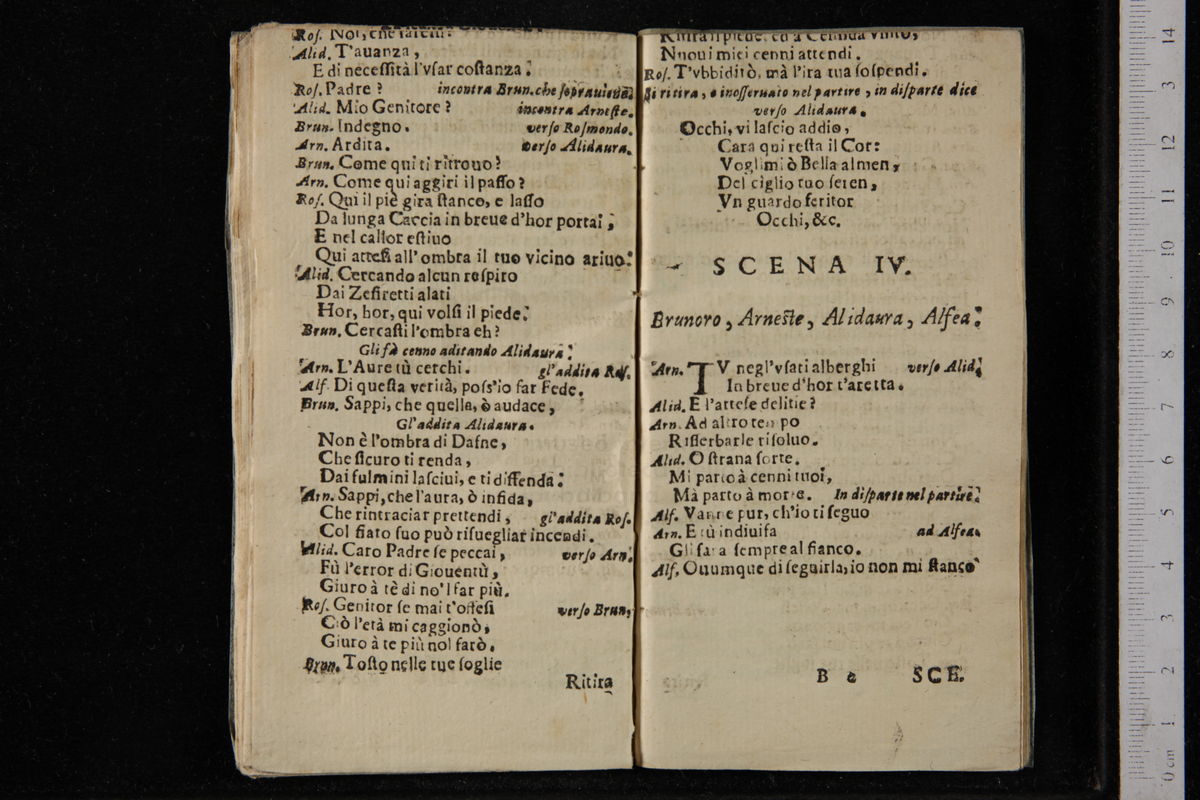 Roſ. Noi, che
Alid. T'auanza,
E di neceſſità l'vſar coſtanza.
Roſ. Padre? incontra Brun. che ſoprauiene.
Alid. Mio Genitore? incontra Arneſte.
Brun. Indegno. verſo Roſmondo.
Arn. Ardita. verſo Alidaura.
Brun. Come qui ti ritrouo?
Arn. Come qui aggiri il paſſo?
Roſ. Qui il piè gira ſtanco, e laſſo
Da lunga Caccia in breue d'hor portai;
E nel callor eſtiuo
Qui atteſi all'ombra il tuo vicino ariuo.
Alid. Cercando alcun reſpiro
Dai Zefiretti alati
Hor, hor, qui volſi il piede.
Brun. Cercaſti l'ombra eh?
Gli fà cenno aditando Alidaura.
Arn. L'Aure tù cerchi. gl'addita Roſ.
Alf. Di queſta verità, poſs'io far Fede.
Brun. Sappi, che quella, ò audace,
Gl'addita Alidaura.
Non è l'ombra di Dafne,
Che ſicuro ti renda,
Dai fulmini laſciui, e ti diffenda.
Arn. Sappi, che l'aura, ò infida,
Che rintraciar prettendi, gl'addita Roſ.
Col fiato ſuo può riſuegliar incendi.
Alid. Caro Padre ſe peccai, verſo Arn.
Fù l'error di Giouentù,
Giuro à tè di no'l far più.
Roſ. Genitor ſe mai t'offeſi verſo Brun,
Ciò l'età mi caggionò,
Giuro à te più nol farò.
Brun. Toſto nelle tue ſoglie
Ritira
Ritira il piede, ed à
Nuoui miei cenni attendi.
Roſ. T'vbbidirò, mà l'ira tua ſoſpendi.
Si ritira, e inoſſeruato nel partire, in diſparte dice
verſo Alidaura.
Occhi, vi laſcio addio,
Cara qui reſta il Cor:
Voglimi ò Bella almen,
Del ciglio tuo ſeren,
Vn guardo feritor
Occhi, &c.
SCENA IV.
Brunoro, Arneſte, Alidaura, Alfea.
Arn. TV negl'vſati alberghi verſo Alid.
In breue d'hor t'aretta.
Alid. E l'atteſe delitie?
Arn. Ad altro tempo
Riſſerbarle riſoluo.
Alid. O ſtrana ſorte.
Mi parto à cenni tuoi,
Mà parto à morte. In diſparte nel partire.
Alf. Vanne pur, ch'io ti ſeguo
Arn. E tù indiuiſa ad Alfea.
Gli ſarà ſempre al fianco.
Alf. Ouumque di ſeguirla, io non mi ſtanco
B 2 SCE.